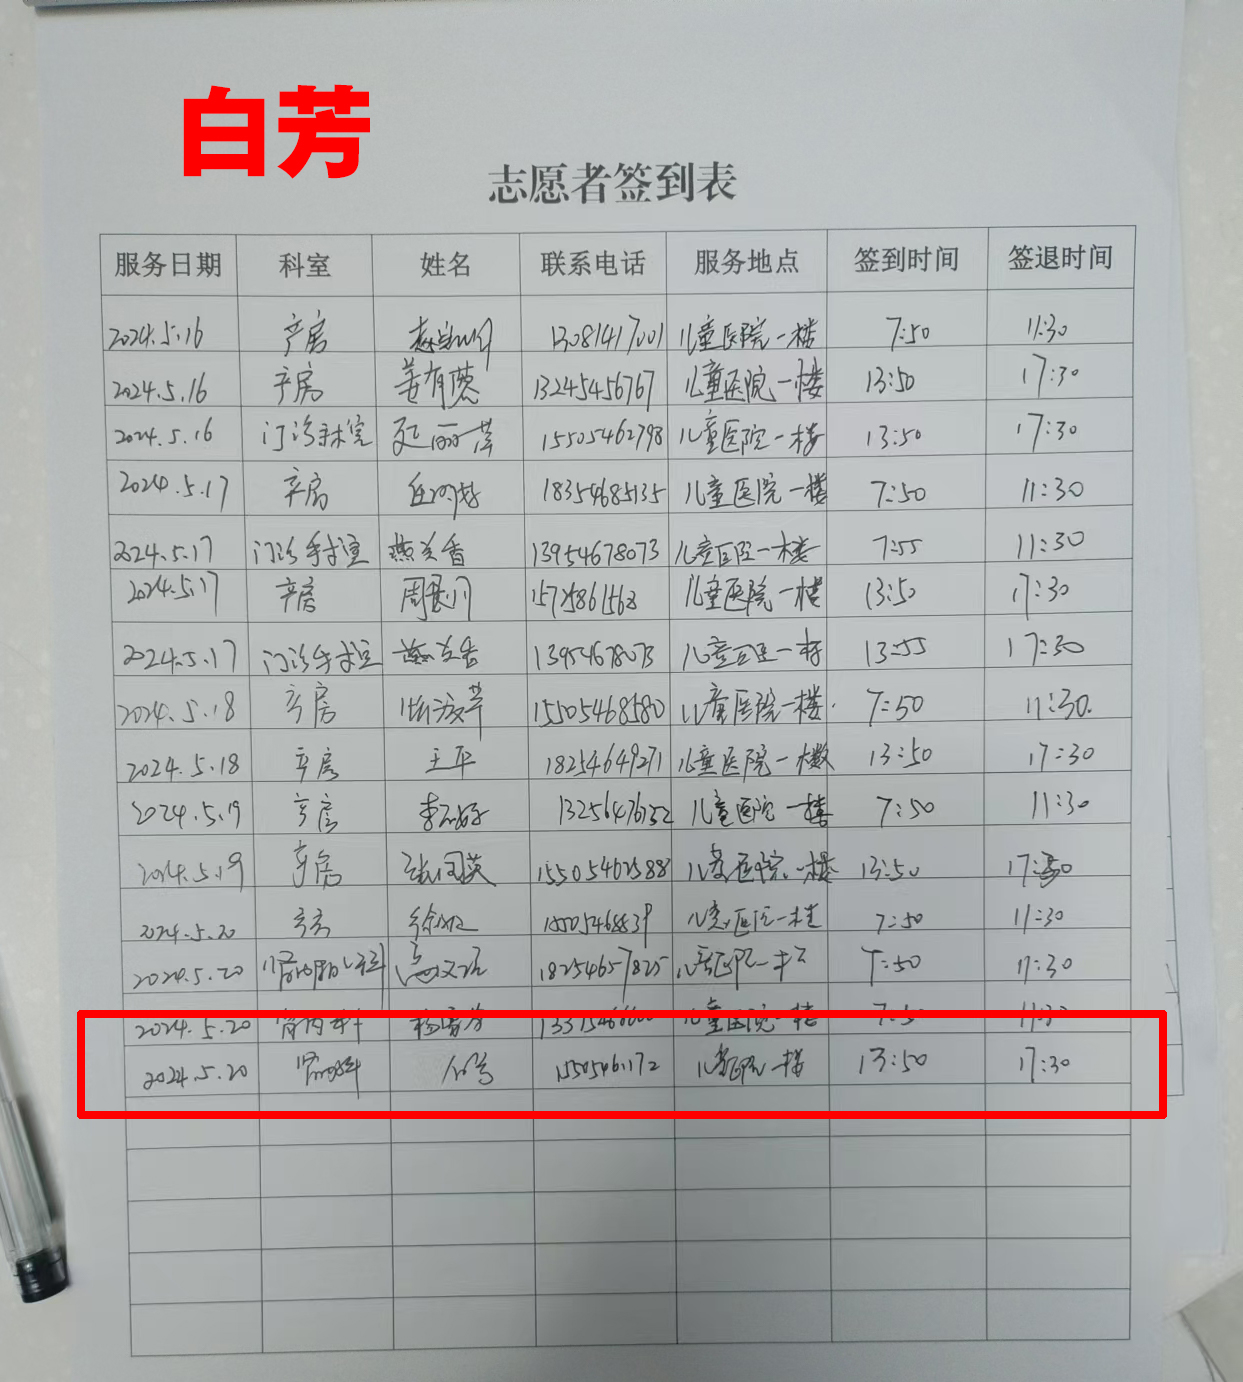 白芳
志愿者签到表
服务日期 科室 姓名 联系电话 服务地点 签到时间 签退时间
2024.5.16 产房 13081417001 儿童医院一楼 7:50 11:30
2024.5.16 产房 姜有慧 13245456767 儿童医院一楼 13:50 17:30
2024.5.16 门诊手术室 延丽萍 15505462798 儿童医院一楼 13:50 17:30
2024.5.17 产房 18354685135 儿童医院一楼 7:50 11:30
2024.5.17 门诊手术室 燕兰香 13954678073 儿童医院一楼 7:55 11:30
2024.5.17 产房 儿童医院一楼 13:50 17:30
2024.5.17 门诊手术室 燕兰香 13954678073 13:55 17:30
2024.5.18 产房 15505468580 儿童医院一楼 7:50 11:30
2024.5.18 产房 王平 18254649271 儿童医院一楼 13:50 17:30
2024.5.19 产房 儿童医院一楼 7:50 11:30
2024.5.19 产房 张同英 儿童医院一楼 13:50 17:30
2024.5.20 儿童医院一楼 7:50 11:30
2024.5.20 18254657825 7:50 11:30
2024.5.20 肾内科 儿童医院一楼 7:50 11:30
2024.5.20 肾内科 儿童医院一楼 13:50 17:30